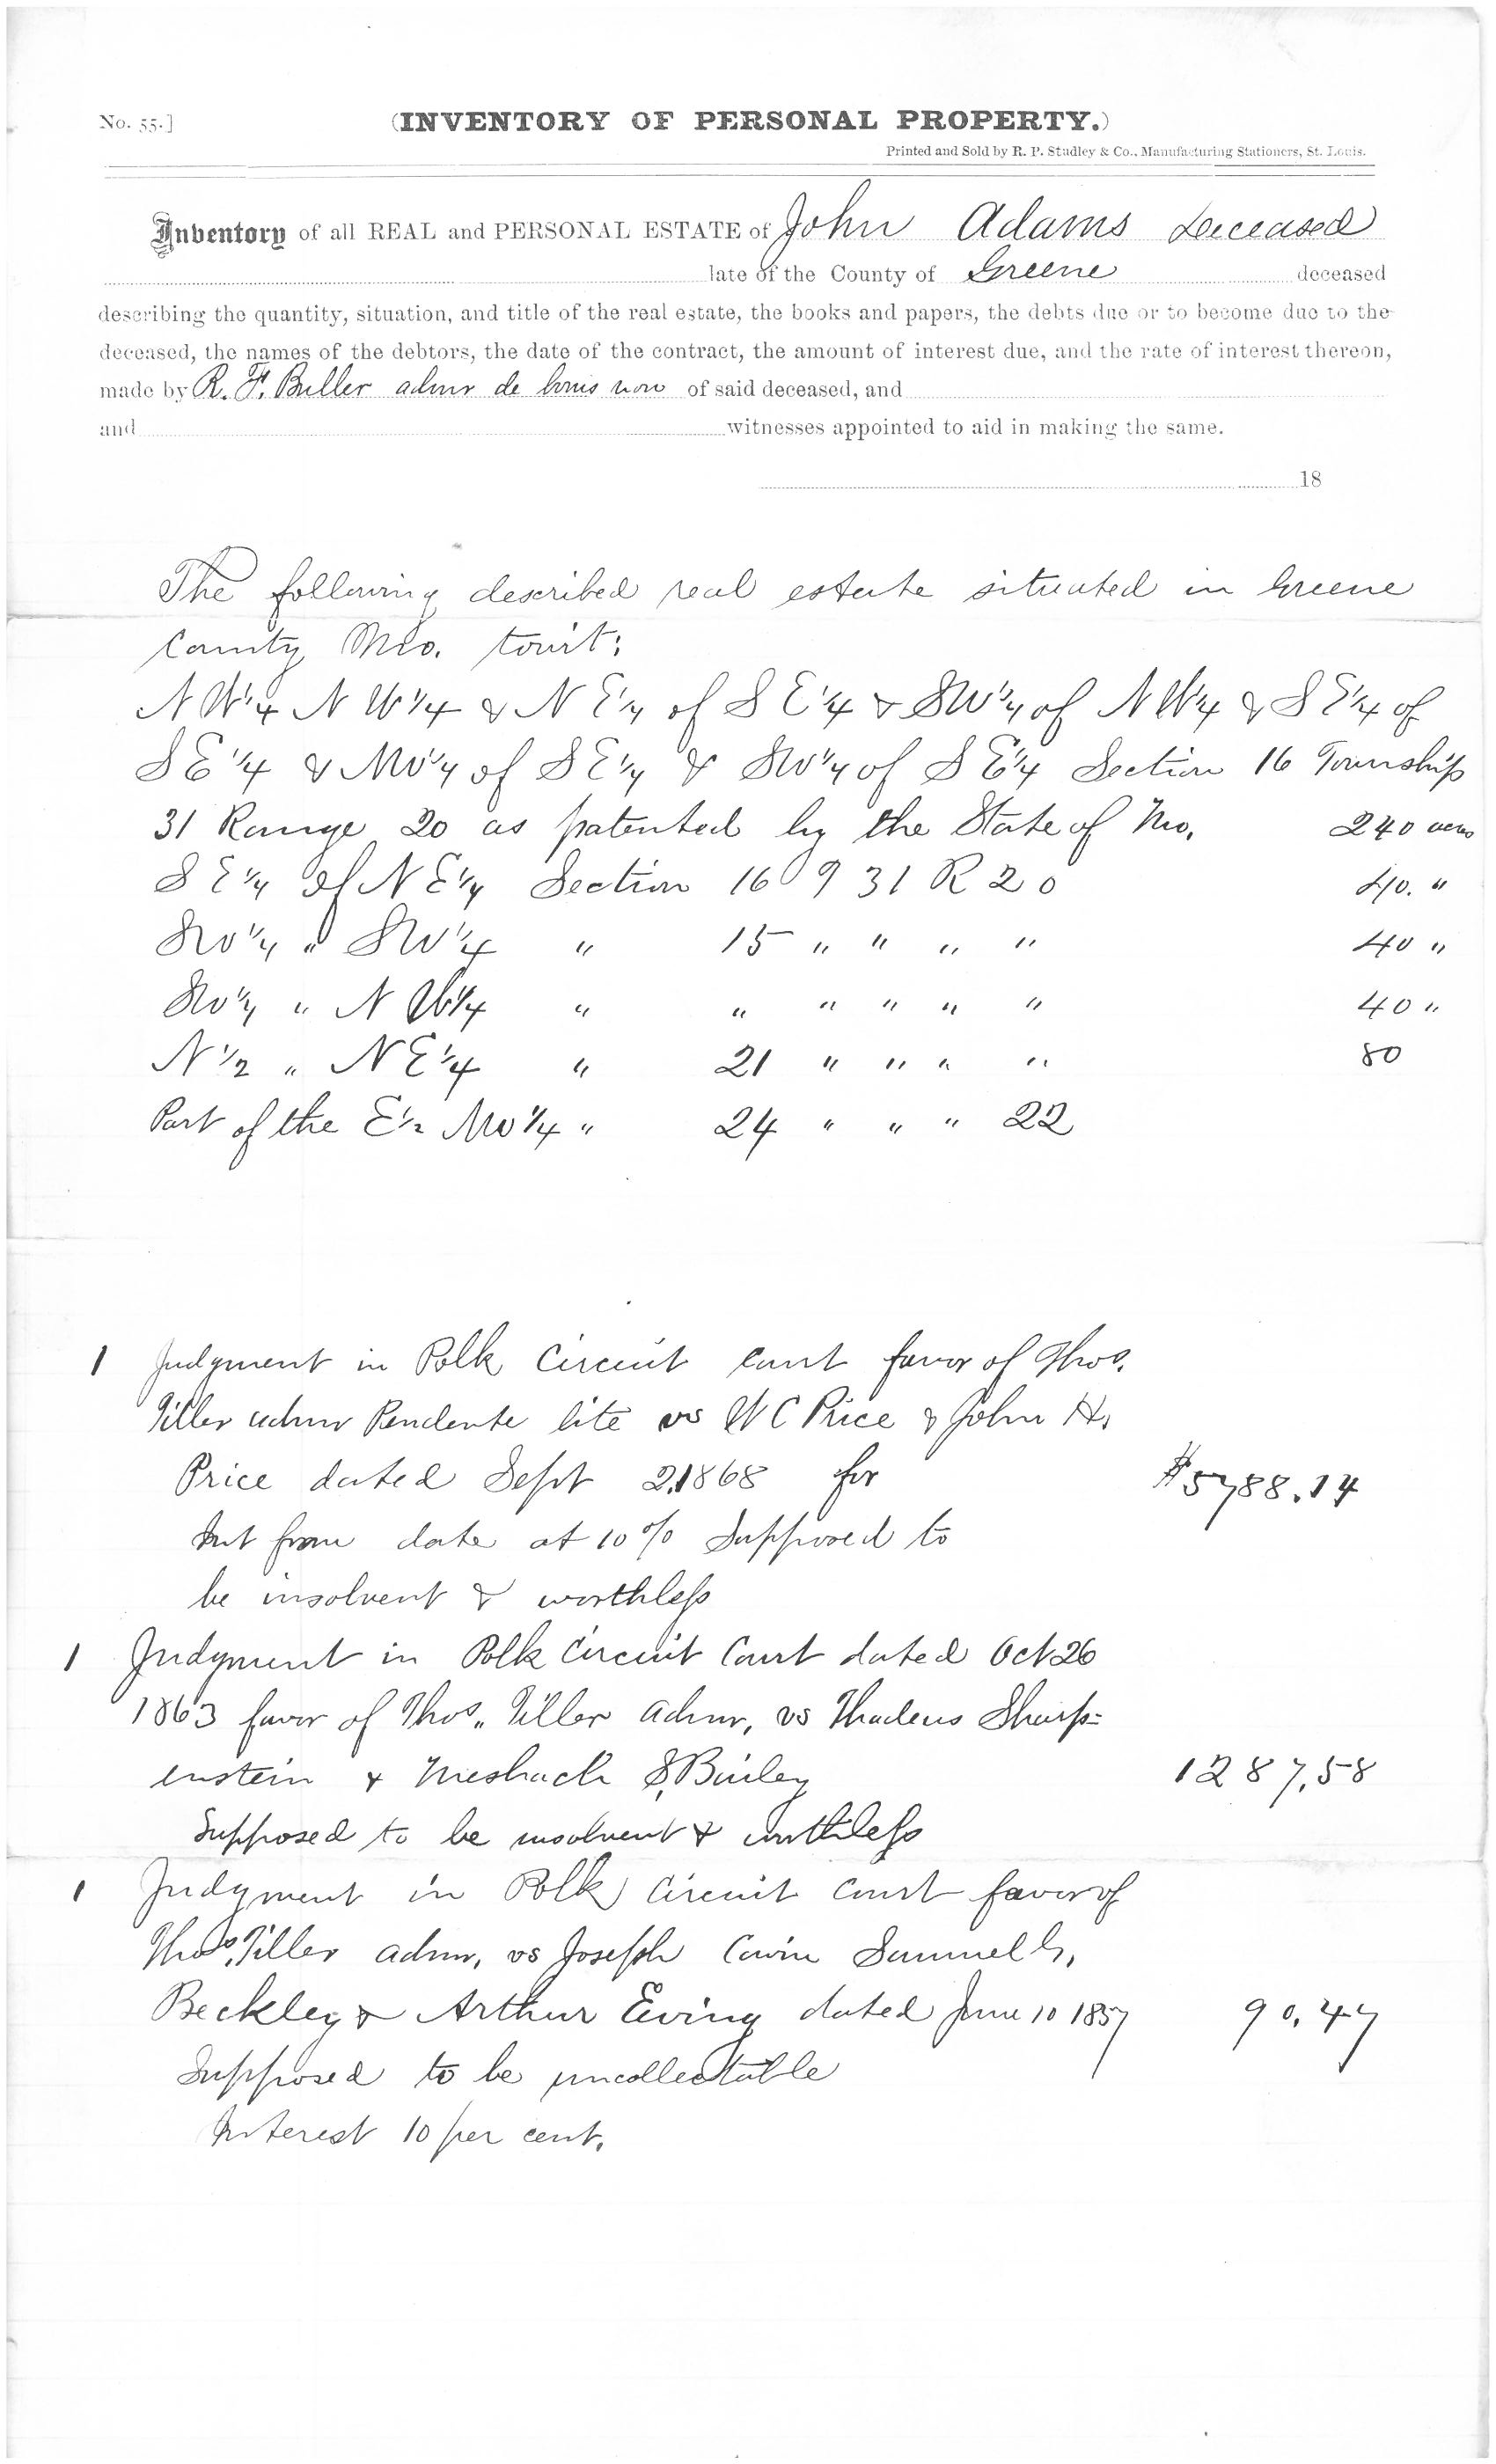 No. 55.]
(INVENTORY OF PERSONAL PROPERTY.)
Printed and Sold by R. P. Studley & Co., Manufacturing Stationers, St. Louis.
Inventory of all REAL and PERSONAL ESTATE of John Adams Deceased
late of the County of Greene deceased
describing the quantity, situation, and title of the real estate, the books and papers, the debts due or to become due to the
deceased, the names of the debtors, the date of the contract, the amount of interest due, and the rate of interest thereon,
made by R. F. Buller admr de bonis non of said deceased, and
and witnesses appointed to aid in making the same.
18
The following described real estate situated in Greene
County Mo. towit:
N W 1/4 N W 1/4 & N E 1/4 of S E 1/4 & SW 1/4 of N W 1/4 & S E 1/4 of
S E 1/4 & NW 1/4 of S E 1/4 & SW 1/4 of S E 1/4 Section 16 Township
31 Range 20 as patented by the State of Mo. 240 acres
S E 1/4 of N E 1/4 Section 16 T 31 R 20 40. "
SW 1/4 " SW 1/4 " 15 " " " " 40 "
SW 1/4 " N W 1/4 " " " " " " 40 "
N 1/2 " N E 1/4 " 21 " " " " 80
Part of the E 1/2 NW 1/4 " 24 " " " 22
1 Judgment in Polk Circuit Court favor of Thos.
Tiller admr Pendente lite vs W C Price & John H.
Price dated Sept 2, 1868 for $5788.14
Int from date at 10% Supposed to
be insolvent & worthless
1 Judgment in Polk Circuit Court dated Oct 26
1863 favor of Thos. Tiller admr, vs Thadeus Sharp=
enstein & Meshack S. Bailey 1287.58
Supposed to be insolvent & worthless
1 Judgment in Polk Circuit Court favor of
Thos. Tiller admr, vs Joseph Cowin Samuel
Beckley & Arthur Ewing dated June 10 1857 90.47
Supposed to be uncollectable
Interest 10 per cent.